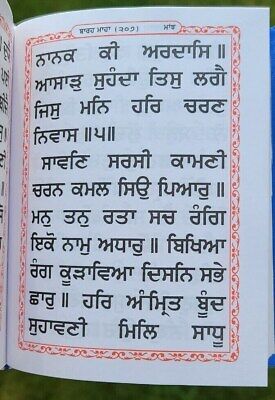 ਬਾਰਹ ਮਾਹਾ (੨੦੭) ਮਾਂਝ
ਨਾਨਕ ਕੀ ਅਰਦਾਸਿ॥
ਆਸਾੜੁ ਸੁਹੰਦਾ ਤਿਸੁ ਲਗੈ
ਜਿਸੁ ਮਨਿ ਹਰਿ ਚਰਣ
ਨਿਵਾਸ॥੫॥
ਸਾਵਣਿ ਸਰਸੀ ਕਾਮਣੀ
ਚਰਨ ਕਮਲ ਸਿਉ ਪਿਆਰੁ॥
ਮਨੁ ਤਨੁ ਰਤਾ ਸਚ ਰੰਗਿ
ਇਕੋ ਨਾਮੁ ਅਧਾਰੁ॥ ਬਿਖਿਆ
ਰੰਗ ਕੂੜਾਵਿਆ ਦਿਸਨਿ ਸਭੇ
ਛਾਰੁ॥ ਹਰਿ ਅੰਮ੍ਰਿਤ ਬੂੰਦ
ਸੁਹਾਵਣੀ ਮਿਲਿ ਸਾਧੂ